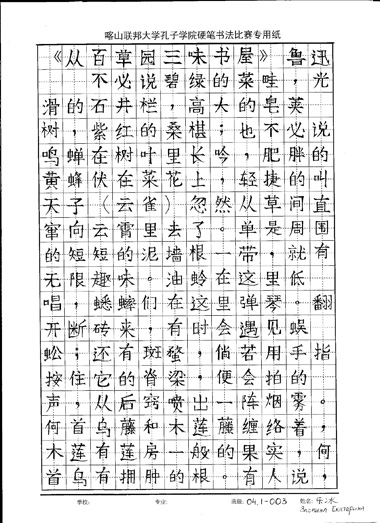 喀山联邦大学孔子学院硬笔书法比赛专用纸
《从百草园三味书屋》鲁迅
不必说碧绿的菜畦，光
滑的石井栏，高大的皂荚
树，紫红的桑椹；也不必说
鸣蝉在树叶里长吟，肥胖的
黄蜂伏在菜花上，轻捷的叫
天子（云雀）忽然从草间直
窜向云霄里去了。单是周围
的短短的泥墙根一带，就有
无限趣味。油蛉在这里低
唱，蟋蟀们在这里弹琴。翻
开断砖来，有时会遇见蜈
蚣；还有斑蝥，倘若用手指
按住它的脊梁，便会拍的
声，从后窍喷出一阵烟雾。
何首乌藤和木莲藤缠络着，
木莲有莲房一般的果实，何
首乌有拥肿的根。有人说，
学校: 专业: 班级: 04.1-003 姓名: